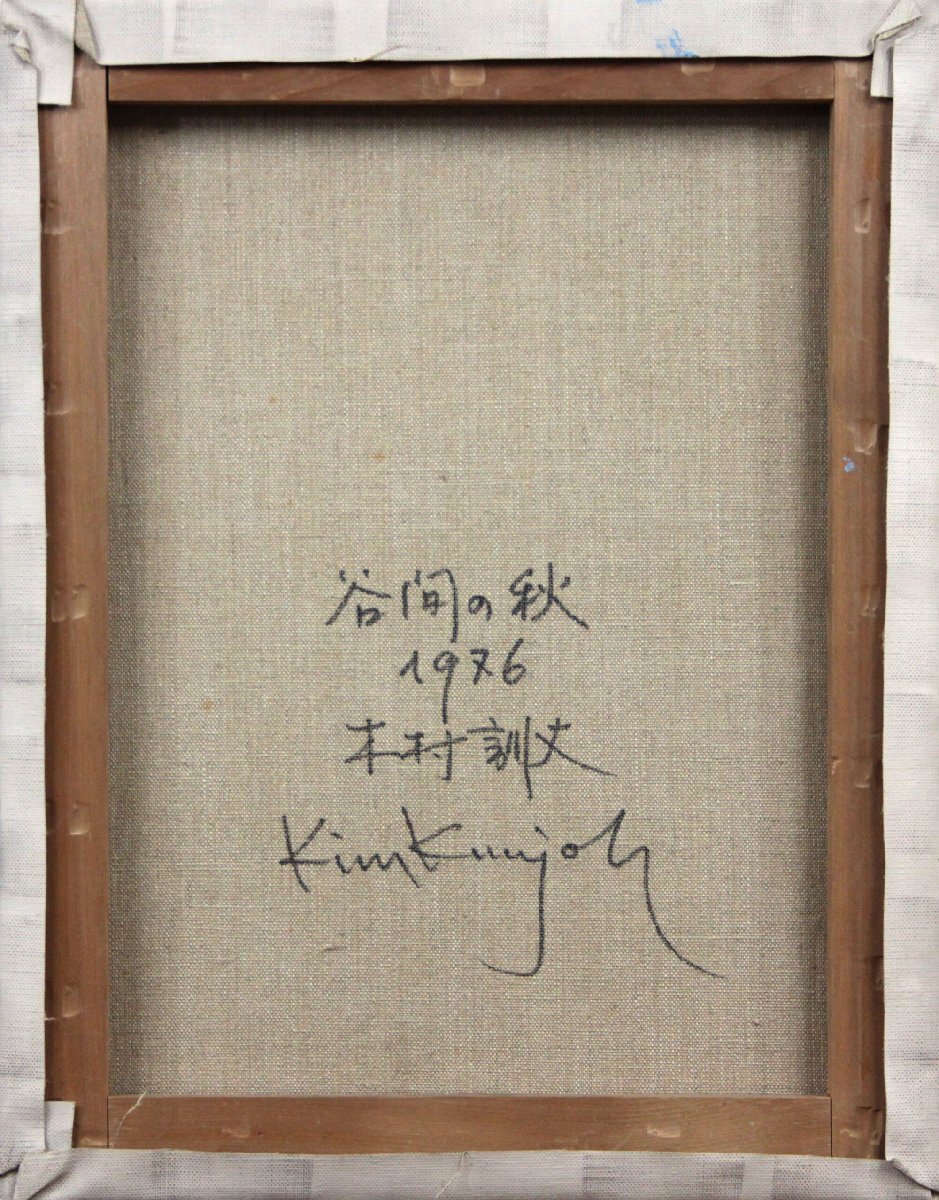 谷間の秋
1976
木村訓丈
Kim Kunjoh